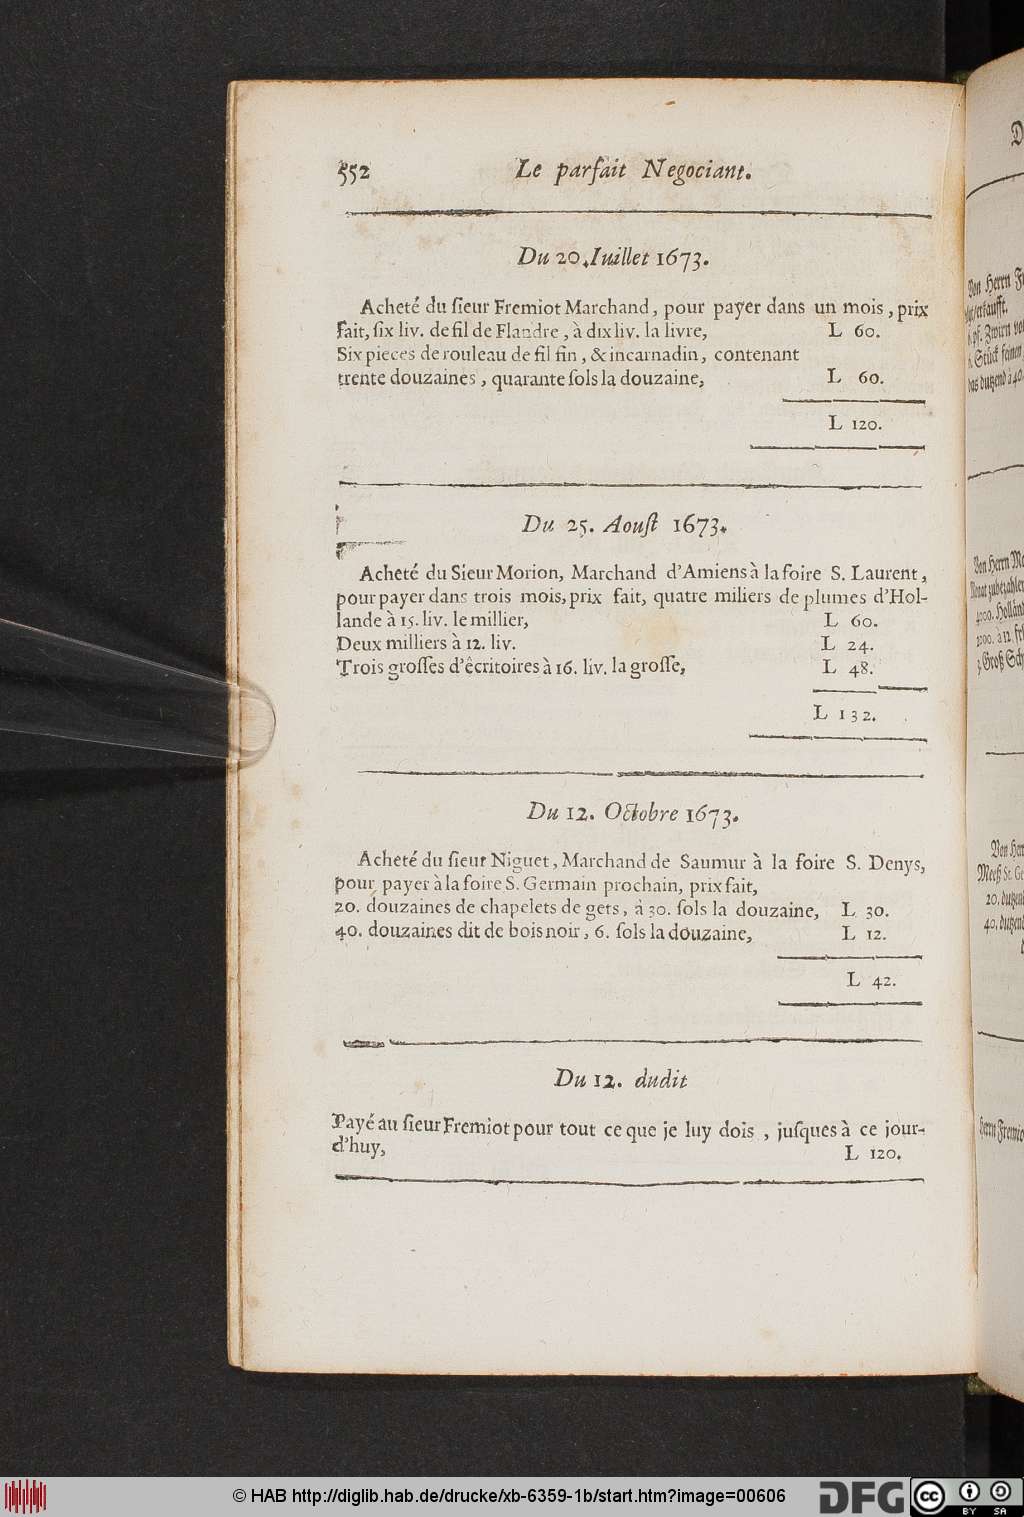 552 Le parfait Negociant.
Du 20. Iuillet 1673.
Acheté du sieur Fremiot Marchand, pour payer dans un mois, prix
fait, six liv. de fil de Flandre, à dix liv. la livre, L 60.
Six pieces de rouleau de fil fin, & incarnadin, contenant
trente douzaines, quarante sols la douzaine, L 60.
L 120.
Du 25. Aoust 1673.
Acheté du Sieur Morion, Marchand d'Amiens à la foire S. Laurent,
pour payer dans trois mois, prix fait, quatre miliers de plumes d'Hol-
lande à 15. liv. le millier, L 60.
Deux milliers à 12. liv. L 24.
Trois grosses d'êcritoires à 16. liv. la grosse, L 48.
L 132.
Du 12. Octobre 1673.
Acheté du sieur Niguet, Marchand de Saumur à la foire S. Denys,
pour payer à la foire S. Germain prochain, prix fait,
20. douzaines de chapelets de gets, à 30. sols la douzaine, L 30.
40. douzaines dit de bois noir, 6. sols la douzaine, L 12.
L 42.
Du 12. dudit
Payé au sieur Fremiot pour tout ce que je luy dois, jusques à ce jour-
d'huy, L 120.
Von Herrn
6. pf. Zwirn
6. Stück feinen
das dutzend à 40.
Von Herrn
Monat zubezahlen
4000. Holländ
2000. à 12.
3. Groß
Von Her
Meeß St. Ge
20. dutzen
40. dutzen
Herrn Fremio
© HAB http://diglib.hab.de/drucke/xb-6359-1b/start.htm?image=00606
DFG
cc
BY SA